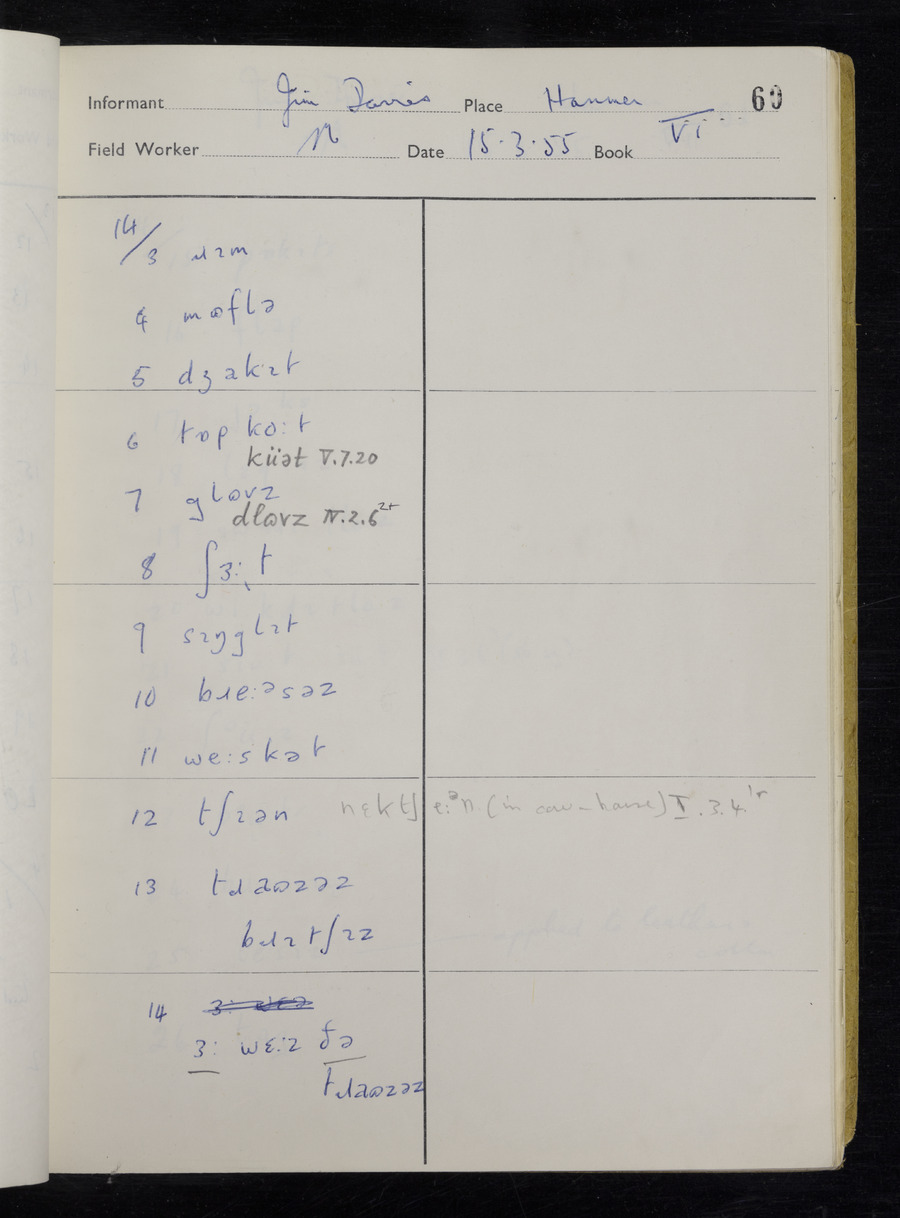 Informant Jim Davies Place Hanmer 60
Field Worker N Date 15.3.55 Book VI
14/3 ɹɪm
4 mɷflə
5 dʒakɪt
6 tɒp ko:t
küət V.7.20
7 glɷvz
dlɷvz IV.2.6
8 ʃɜ:t
9 sɪŋglɪt
10 bɹe:əsəz
11 we:skət
12 tʃɪən nɛktʃe:ən (in cow-house) I.3.4
13 tɹaɷzəz
bɹɪtʃɪz
14
ɜ: wɛ:z ðə
tɹaɷzəz